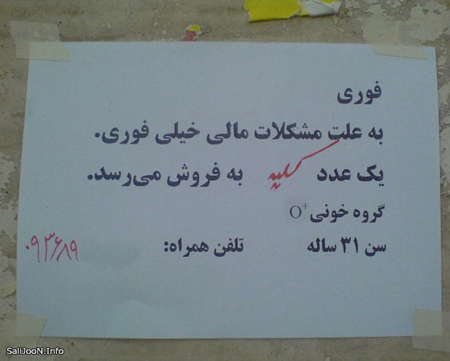 فوری
به علت مشکلات مالی خیلی فوری.
یک عدد کلیه به فروش می‌رسد.
گروه خونی O+
سن ۳۱ ساله تلفن همراه: ۰۹۳۶۸۹
SaliJooN.Info